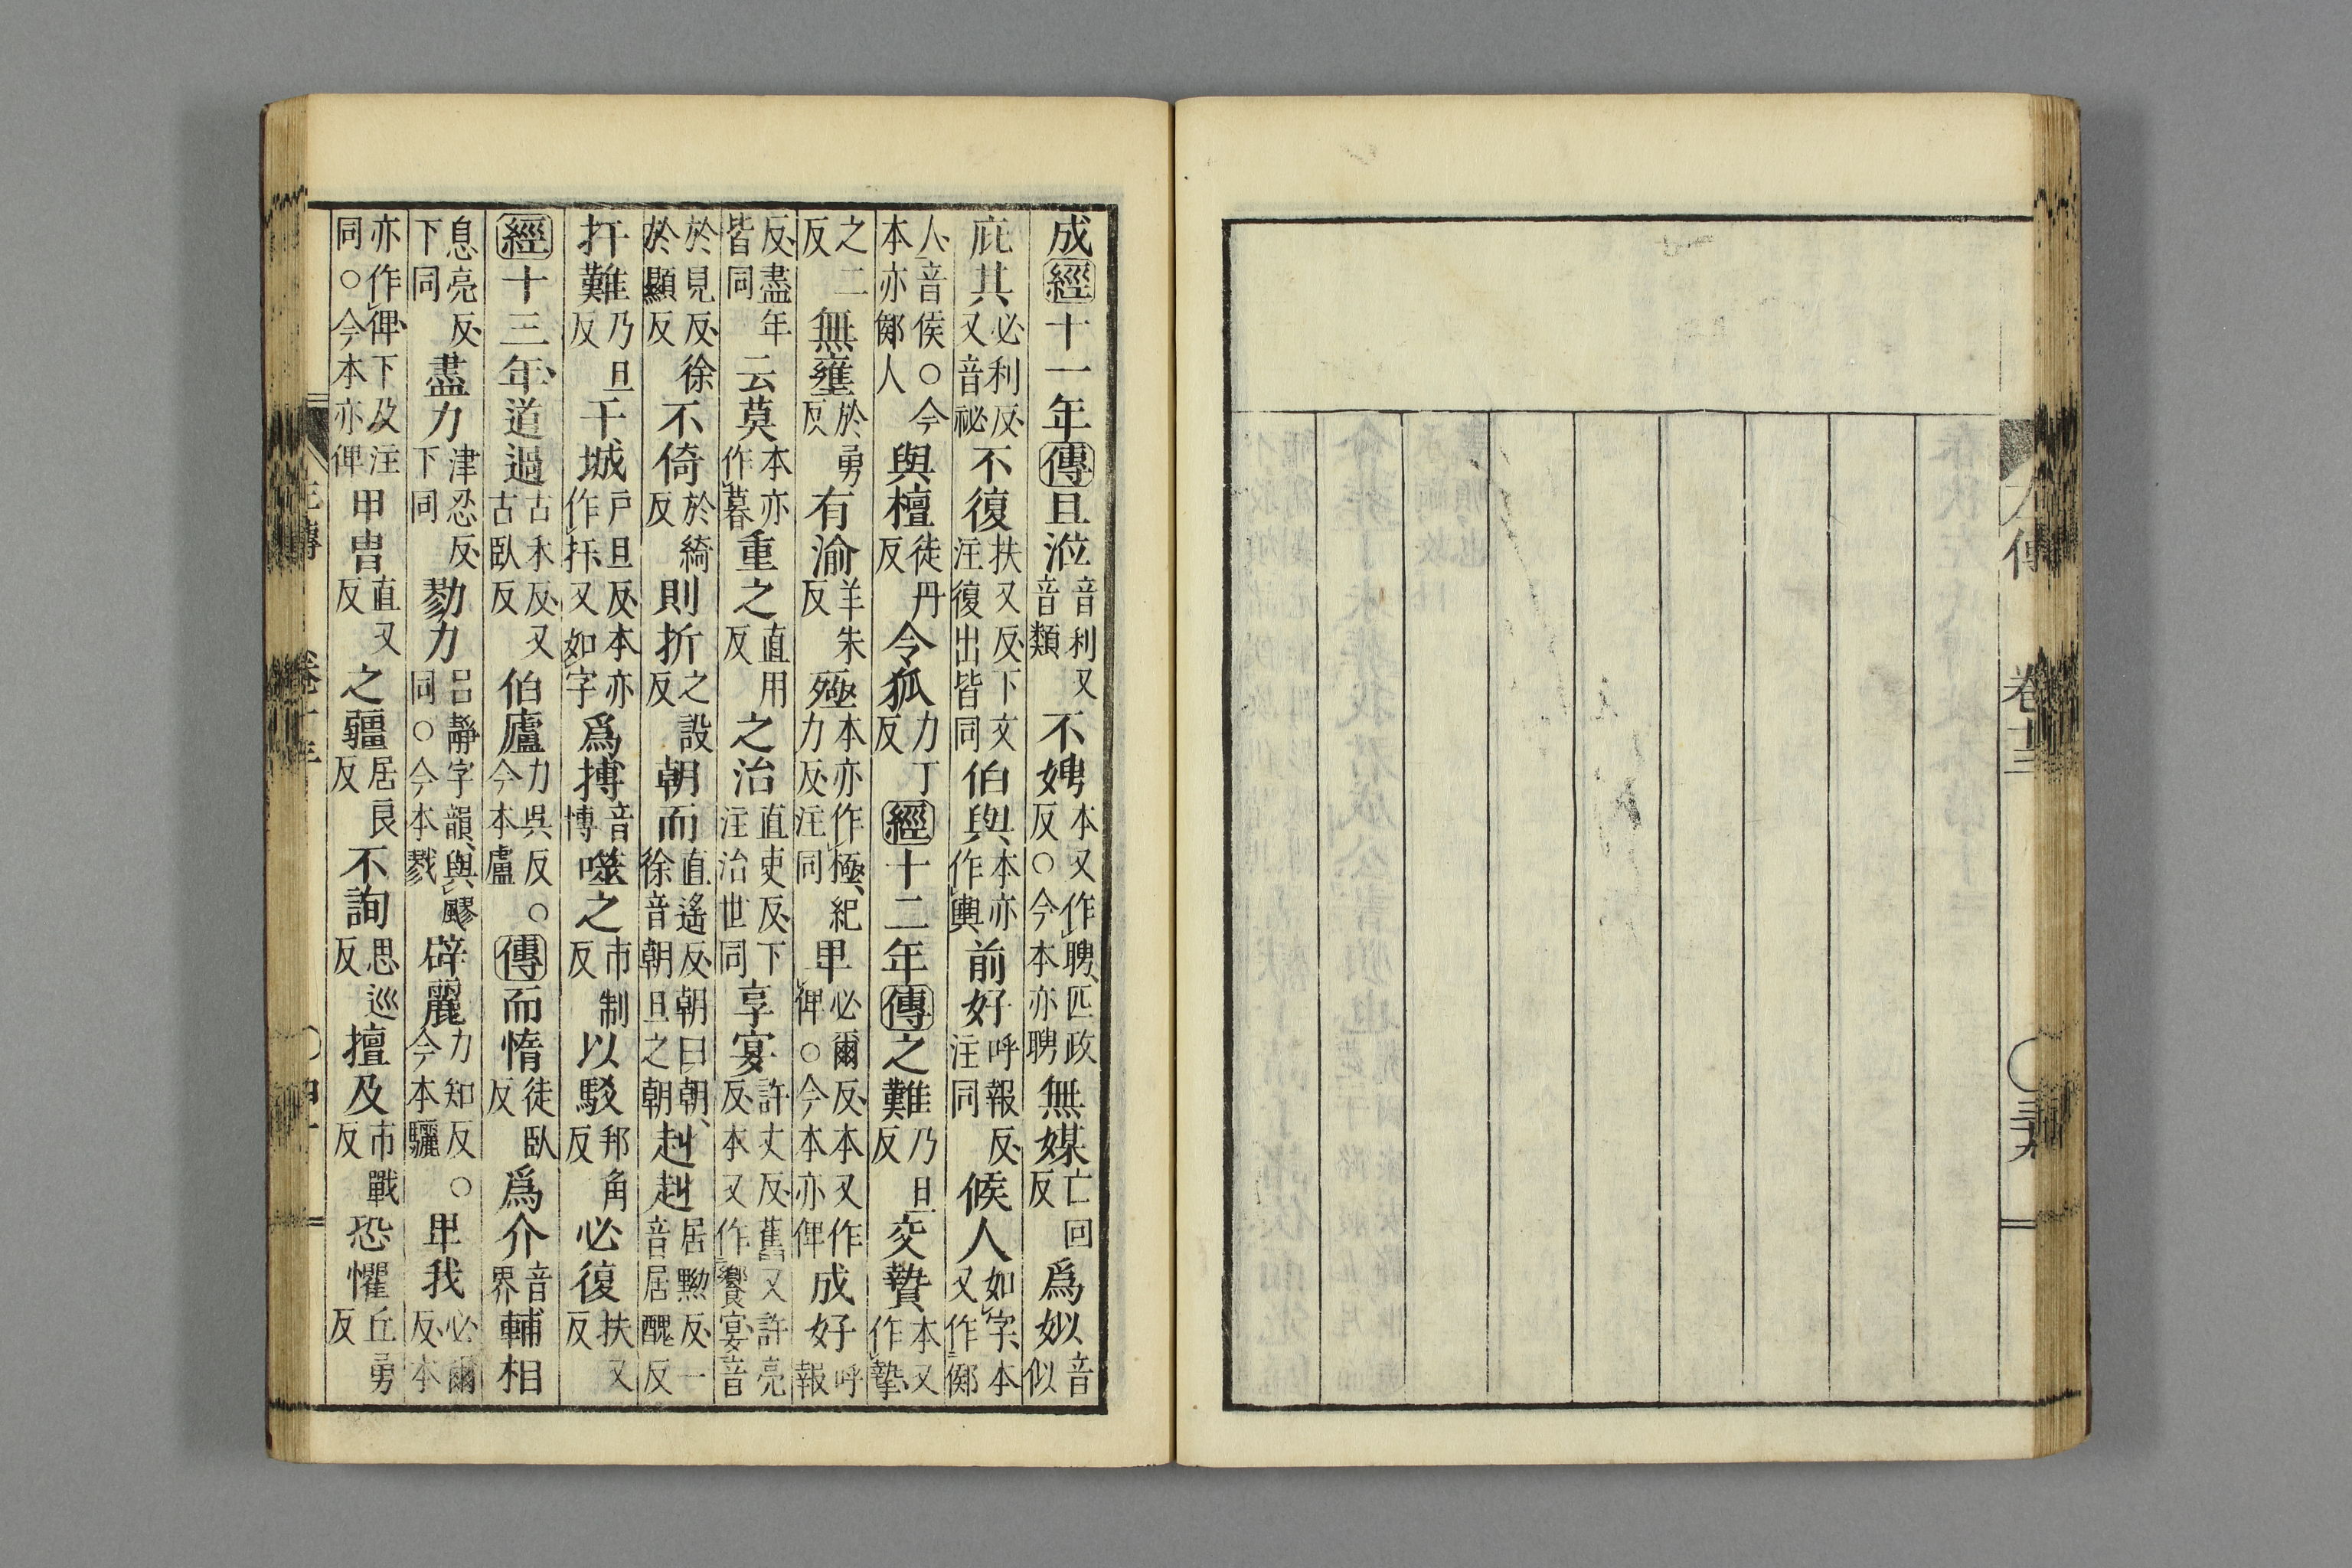 左傳 卷十三 ○三九
成經十一年傳且涖音利又音類不娉本又作聘、匹政反○今本亦聘無媒亡回反爲姒音似
庇其必利反又音祕不復扶又反下文注復出皆同伯與本亦作輿前好呼報反注同候人如字、本又作鄇
人音侯○今本亦鄇人與檀徒丹反令狐力丁反經十二年傳之難乃旦反交贄本又作摯
之二反無壅於勇反有渝羊朱反殛本亦作極、紀力反注同畀必爾反本又作俾○今本亦俾成好呼報
反盡年皆同云莫本亦作暮重之直用反之治直吏反下注治世同享宴許丈反舊又許亮反本又作饗宴音
於見反徐於顯反不倚於綺反則折之設反朝而直遙反朝曰朝、徐音朝旦之朝赳赳居黝反一音居醜反
扞難乃旦反干城戶旦反本亦作扞又如字爲搏音博噬之市制反以駁邦角反必復扶又反
經十三年道過古禾反又古臥反伯廬力吳反○今本盧傳而惰徒臥反爲介音界輔相
息亮反下同盡力津忍反下同勠力呂靜字韻與飂同○今本戮辟麗力知反○今本驪畀我必爾反本
亦作俾下及注同○今本亦俾甲冑直又反之疆居良反不詢思巡反擅及市戰反恐懼丘勇反